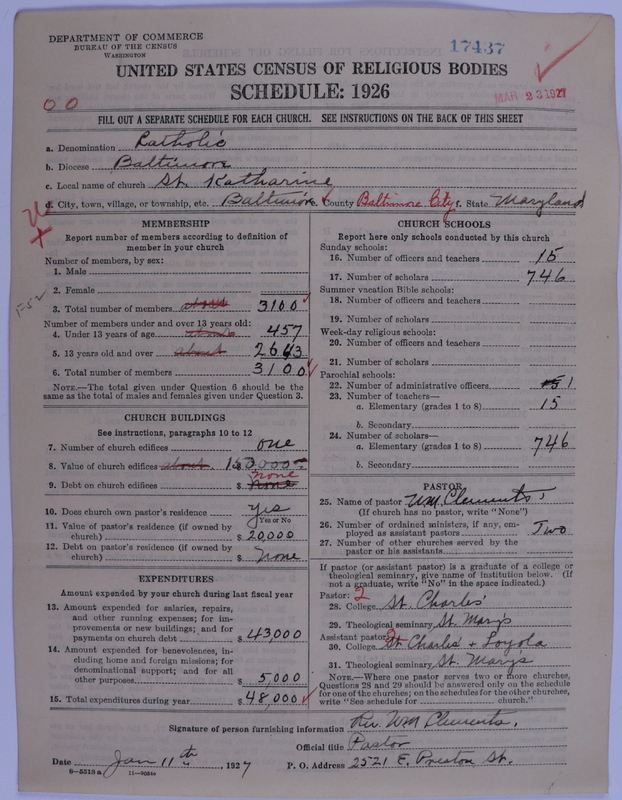 DEPARTMENT OF COMMERCE
BUREAU OF THE CENSUS
WASHINGTON
17437
UNITED STATES CENSUS OF RELIGIOUS BODIES
SCHEDULE: 1926
MAR 23 1927
00
FILL OUT A SEPARATE SCHEDULE FOR EACH CHURCH. SEE INSTRUCTIONS ON THE BACK OF THIS SHEET
a. Denomination Katholic
b. Diocese Baltimore
c. Local name of church St. Katharine
d. City, town, village, or township, etc. Baltimore e. County Baltimore City f. State Maryland
MEMBERSHIP
Report number of members according to definition of
member in your church
Number of members, by sex:
1. Male
2. Female
3. Total number of members about 3100
Number of members under and over 13 years old:
4. Under 13 years of age about 457
5. 13 years old and over about 2643
6. Total number of members 3100
NOTE.—The total given under Question 6 should be the
same as the total of males and females given under Question 3.
CHURCH BUILDINGS
See instructions, paragraphs 10 to 12
7. Number of church edifices one
8. Value of church edifices about $ 150,000
9. Debt on church edifices $ none none
10. Does church own pastor's residence yes
Yes or No
11. Value of pastor's residence (if owned by
church) $ 20000
12. Debt on pastor's residence (if owned by
church) $ none
EXPENDITURES
Amount expended by your church during last fiscal year
13. Amount expended for salaries, repairs,
and other running expenses; for im-
provements or new buildings; and for
payments on church debt $ 43,000
14. Amount expended for benevolences, in-
cluding home and foreign missions; for
denominational support; and for all
other purposes $ 5,000
15. Total expenditures during year $ 48,000
CHURCH SCHOOLS
Report here only schools conducted by this church
Sunday schools:
16. Number of officers and teachers 15
17. Number of scholars 746
Summer vacation Bible schools:
18. Number of officers and teachers
19. Number of scholars
Week-day religious schools:
20. Number of officers and teachers
21. Number of scholars
Parochial schools:
22. Number of administrative officers 1
23. Number of teachers—
a. Elementary (grades 1 to 8) 15
b. Secondary
24. Number of scholars—
a. Elementary (grades 1 to 8) 746
b. Secondary
PASTOR
25. Name of pastor WM, Clements,
(If church has no pastor, write "None")
26. Number of ordained ministers, if any, em-
ployed as assistant pastors Two
27. Number of other churches served by the
pastor or his assistants
If pastor (or assistant pastor) is a graduate of a college or
theological seminary, give name of institution below. (If
not a graduate, write "No" in the space indicated.)
Pastor: 2
28. College St. Charles'
29. Theological seminary St. Marys
Assistant pastor: 2
30. College St Charles' + Loyola
31. Theological seminary St. Marys
NOTE.—Where one pastor serves two or more churches,
Questions 28 and 29 should be answered only on the schedule
for one of the churches; on the schedules for the other churches,
write "See schedule for church."
Signature of person furnishing information Rev. WM Clements.
Official title Pastor
Date Jan 11th, 1927 P. O. Address 2521 E. Preston St.
8—5518a 11—9034